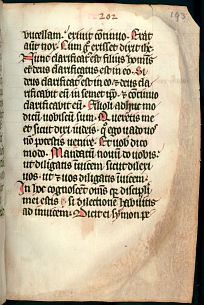 202
193
bucellam. exiuit cōtinuo. Erat
aūt nox. Cum g̊ exisset dixit ih̄c.
Nunc clarificat̄ est filius hoīnis
et deus clarificatus est in eo. Si
deus clarificat̄ est in eo: et deus cla
rificabit eū in semet ip̄o. et cōtinuo
clarificabit eū. Filioli adhuc mo
dicū vobiscū sum. Queretis me
et sicut dixi iudeis. quo ego vado vos
nō potestis venire. Et vob̄ dico
modo. Mandatū nouū do vobis.
ut diligatis inuicem. sicut dilexi
uos. ut et vos diligatis inuicem.
In hoc cognoscent om̄s q̄ discipli
mei estis. si dilectionē habūitis
ad inuicem. Dicit ei symon pe